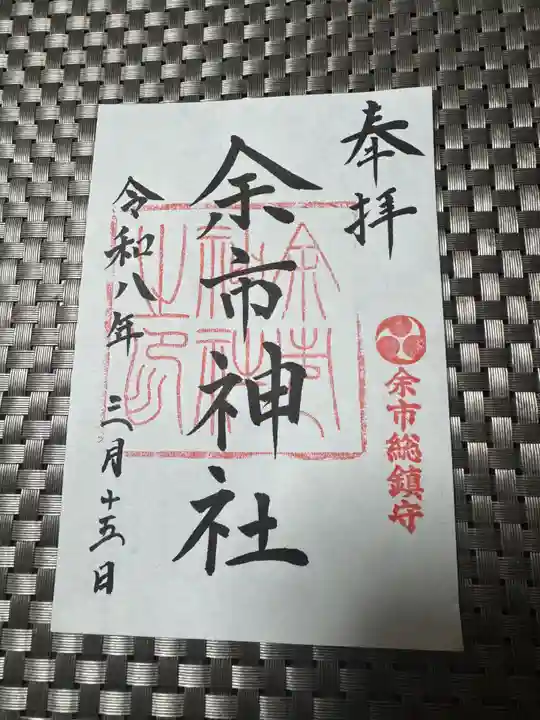 奉拝
余市総鎮守
余市神社
余市神社之印
令和八年 三月十五日